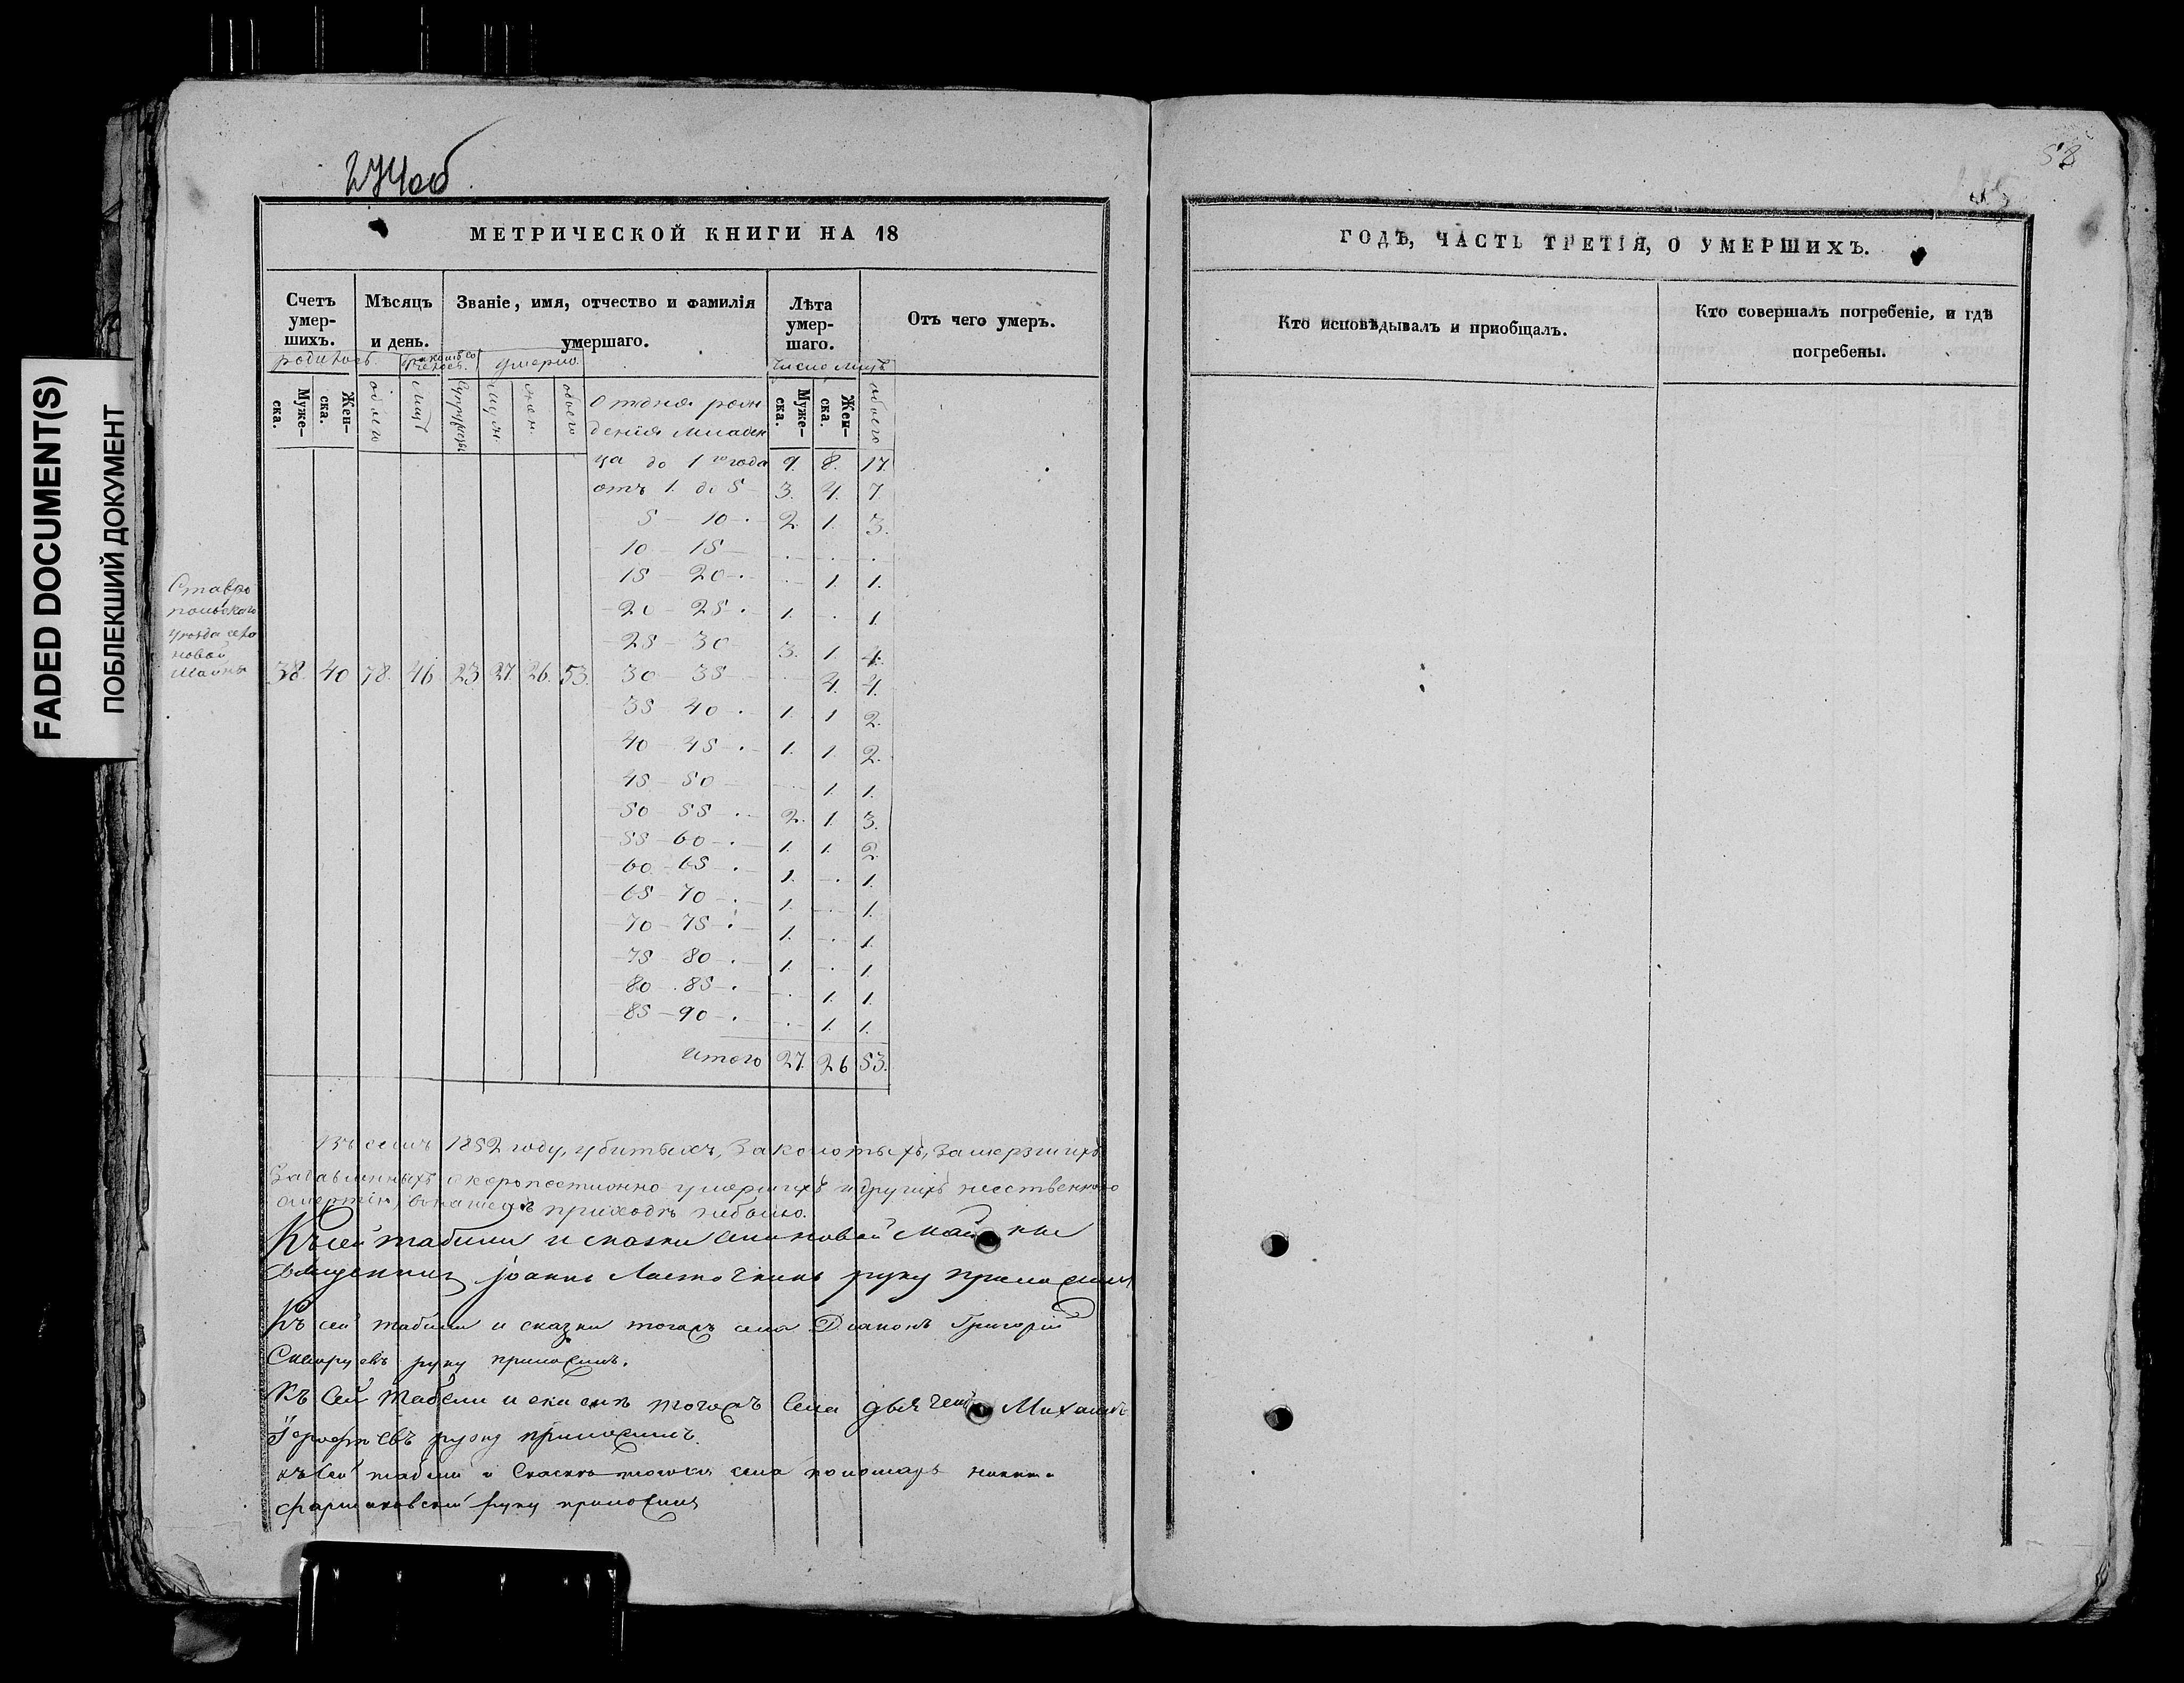 FADED DOCUMENT(S)
ПОБЛЕКШИЙ ДОКУМЕНТ
274об
58
МЕТРИЧЕСКОЙ КНИГИ НА 18
Счетъ умер-шихъ.
Мѣсяцъ и день.
Званіе, имя, отчество и фамилія умершаго.
Лѣта умер-шаго.
Отъ чего умеръ.
родилось. умерло. Число лицъ
Муже-ска. Жен-ска. обоего лицъ муж. жен. обоего
Муже-ска. Жен-ска. обоего
от дня рож
денія младен
ца до 1 го года 9. 8. 17.
отъ 1. до 5 3. 4. 7.
5 — 10 2. 1. 3.
10 — 15 . . .
15 — 20 . 1. 1.
20 — 25 1. . 1.
25 — 30 3. 1. 4.
30 — 35 . 4. 4.
35 40 1. 1 2.
40 — 45 1. 1. 2.
45 — 50 . 1. 1.
50 — 55 2. 1. 3.
55 — 60 1. 1. 2.
60 — 65 1. . 1.
65 — 70 1. . 1.
70 — 75 1. . 1.
75 — 80 1. . 1.
80 . 85 . 1. 1.
85 — 90 . 1. 1.
Итого 27. 26 53.
Ставро
польского
уезда село
новой
Майны
38. 40 78. 46 23 27. 26. 53.
Въ семъ 1852 году, убитыхъ, заколотыхъ, замерзшихъ
задавленныхъ скоропостижно умершихъ и другихъ
смертію, въ нашемъ приходѣ небыло.
Къ сей табели и сказки села новой Майны
Священник Іоаннъ Ласточкинъ руку приложилъ
Къ сей табели и сказки тогожъ села Діаконъ Григорій
руку приложилъ.
Къ сей табели и сказкѣ тогожъ села дьячекъ Михаилъ
руку приложилъ.
къ сей табели и Сказкѣ тогожъ села пономарь
руку приложилъ
ГОДЪ, ЧАСТЬ ТРЕТІЯ, О УМЕРШИХЪ.
Кто исповѣдывалъ и пріобщалъ.
Кто совершалъ погребеніе, и гдѣ
погребены.